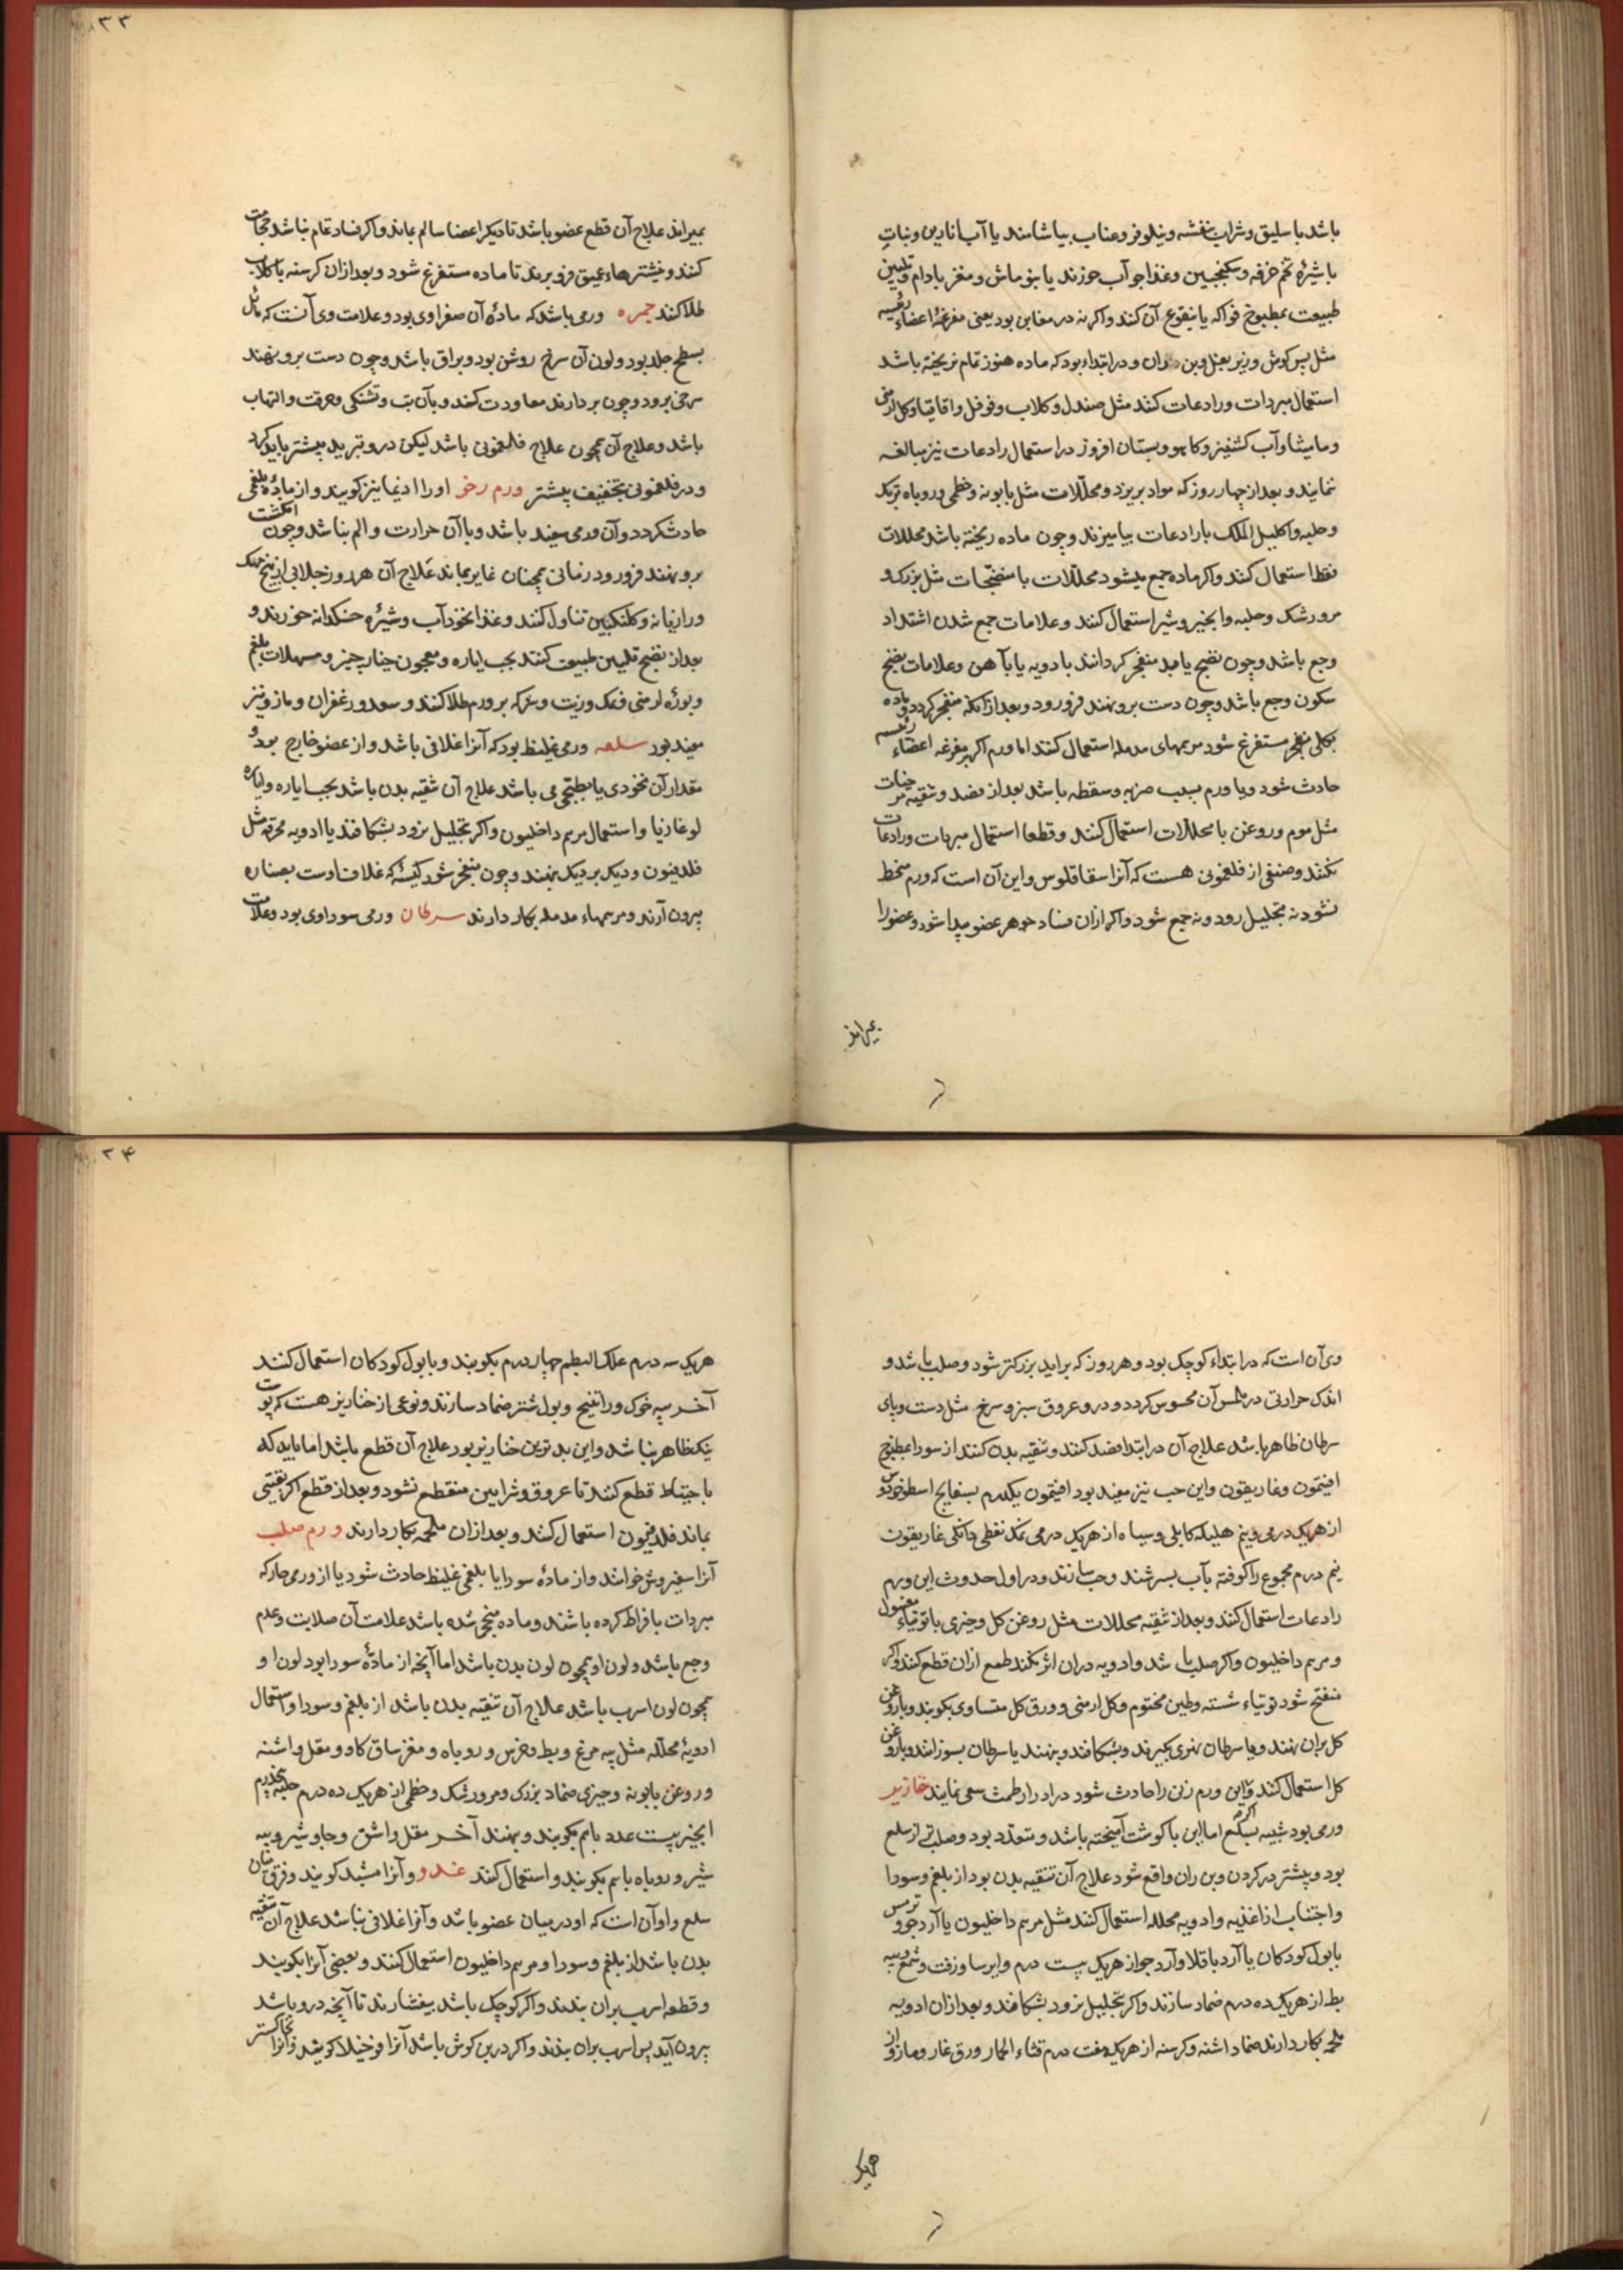 باشد باسلیق و شراب بنفشه و نیلوفر و عناب بیاشامند یا آب انارین و نبات
با شیرهٔ تخم خرفه و سکنجبین و غذا جو آب خورند یا بنو ماش و مغز بادام و تلیین
طبیعت بمطبوخ فواکه یا بنقوع آن کنند و اکر نه در مغابن بود یعنی مفرغهٔ اعضاء رئیسه
مثل پس کوش و زیر بغل و بن ران و در ابتداء بود که ماده هنوز تمام نریخته باشد
استعمال مبردات و رادعات کنند مثل صندل و کلاب و فوفل و اقاقیا و کل ارمنی
و مامیثا و آب کشنیز و کاهو و بستان افروز در استعمال رادعات نیز مبالغه
نمایند و بعد از چهار روز که مواد بریزد و محللات مثل بابونه و خطمی و روباه تربک
و حلبه و اکلیل الملک با رادعات بیامیزند و چون ماده ریخته باشد محللات
فقط استعمال کنند و اکر ماده جمع میشود محللات با منضجات مثل بزرک و
مرورشک و حلبه و انجیر و شیر استعمال کنند و علامات جمع شدن اشتداد
وجع باشد و چون نضج یابد منفجر کردانند بادویه یا بآهن و علامات نضج
سکون وجع باشد و چون دست برو نهند فرو رود و بعد از آنکه منفجر کردد و ماده
بکلی مستفرغ شود مرهمهای مدمله استعمال کنند اما ورم اکر بمفرغه اعضاء رئیسه
حادث شود و یا ورم بسبب ضربه و سقطه باشد بعد از فصد و تنقیه مرخیات
مثل موم و روغن با محللات استعمال کنند و قطعا استعمال مبردات و رادعات
نکنند و صنفی از فلغمونی هست که آنرا سقاقلوس و این آن است که ورم منحط
نشود نه بتحلیل رود و نه جمع شود و اکر ازان فساد جوهر عضو پیدا شود و عضو را
بمیراند
۳۳
بمیراند علاج آن قطع عضو باشد تا دیکر اعضا سالم بماند و اکر فساد تمام نباشد حجامت
کنند و نیشترهاء عمیق فرو برند تا ماده مستفرغ شود و بعد ازان کرسنه با کلاب
طلا کنند جمره ورمی باشد که مادهٔ آن صفراوی بود و علامت وی آنست که مائل
بسطح جلد بود و لون آن سرخ روشن بود و براق باشد و چون دست برو نهند
سرخی برود و چون بردارند معاودت کند و بآن تب و تشنکی و حرقت و التهاب
باشد و علاج آن همچون علاج فلغمونی باشد لیکن درو تبرید بیشتر باید کرد
و در فلغمونی تخفیف بیشتر ورم رخو اورا اذیما نیز کویند و از مادهٔ بلغمی
حادث کردد و آن ورمی سفید باشد و با آن حرارت و الم نباشد و چون انکشت
برو نهند فرو رود زمانی همچنان غایر بماند علاج آن هر روز جلابی از بیخ مهک
و رازیانه و کلنکبین تناول کنند و غذا نخود آب و شیره خسکدانه خورند و
بعد از نضج تلیین طبیعت کنند بحب ایاره و معجون خیار چنبر و مسهلات بلغم
و بوره ارمنی و نمک و زیت و سرکه بر ورم طلا کنند و سعد و زعفران و مازو نیز
مفید بود سلعه ورمی غلیظ بود که آنرا غلافی باشد و از عضو خارج بود و
مقدار آن نخودی یا بطیخی می باشد علاج آن تنقیه بدن باشد بحب ایاره و ایاره
لوغاذیا و استعمال مرهم داخلیون و اکر بتحلیل نرود بشکافند یا ادویه محرقه مثل
فلدفیون و دیک بردیک بنهند و چون منفجر شود کیسهٔ که غلاف اوست بصناره
بیرون آرند و مرهمهاء مدمله بکار دارند سرطان ورمی سوداوی بود و علامت
وی آن است که در ابتداء کوچک بود و هر روز که براید بزرکتر شود و صلب باشد و
اندک حرارتی در ملمس آن محسوس کردد و درو عروق سبز و سرخ مثل دست و پای
سرطان ظاهر باشد علاج آن در ابتدا فصد کنند و تنقیه بدن کنند از سودا بمطبوخ
افیتمون و غاریقون و این حب نیز مفید بود افیتمون یکدرم بسفایج اسطوخودوس
از هریک درمی و نیم هلیله کابلی و سیاه از هریک درمی نمک نفطی دانکی غاریقون
نیم درم مجموع را کوفته بآب بسرشند و حب سازند و در اول حدوث این ورم
رادعات استعمال کنند و بعد از تنقیه محللات مثل روغن کل و خیری با توتیاء مغسول
و مرهم داخلیون و اکر صلب باشد و ادویه دران اثر نکند طمع ازان قطع کنند و اکر
منفتح شود توتیاء شسته و طین مختوم و کل ارمنی و ورق کل متساوی بکوبند و با روغن
کل بران نهند و یا سرطان نهری بکیرند و بشکافند و بنهند یا سرطان بسوزانند و با روغن
کل استعمال کنند و این ورم زن را حادث شود در ادرار طمث سعی نمایند خنازیر
ورمی بود شبیه بسلع اما این با کوشت آمیخته باشد و متعدد بود و صلب تر از سلع
بود و بیشتر در کردن و بن ران واقع شود علاج آن تنقیه بدن بود از بلغم و سودا
و اجتناب از اغذیه و ادویه محلله استعمال کنند مثل مرهم داخلیون یا آرد جو و ترمس
با بول کودکان یا آرد باقلا و آرد جو از هریک بیست درم و ایرسا و زفت و شمع و پیه
بط از هریک ده درم ضماد سازند و اکر بتحلیل نرود بشکافند و بعد ازان ادویه
ملحمه بکار دارند ضماد اشنه و کرسنه از هریک هفت درم قثاء الحمار ورق غار و مازو از
هریک
۳۴
هریک سه درم علک البطم چهار درم بکوبند و با بول کودکان استعمال کنند
آخر پیه خوک و راتینج و بول شتر ضماد سازند و نوعی از خنازیر هست که پوست
نیک ظاهر نباشد و این بدترین خنازیر بود علاج آن قطع باشد اما باید که
باحتیاط قطع کنند تا عروق و شرایین منقطع نشود و بعد از قطع اکر بقیتی
بماند فلدفیون استعمال کنند و بعد ازان ملحمه بکار دارند ورم صلب
آنرا سفیروش خوانند و از مادهٔ سودا یا بلغمی غلیظ حادث شود یا از ورمی حار که
مبردات بافراط کرده باشند و ماده متحجر شده باشد علامت آن صلابت و عدم
وجع باشد و لون او همچون لون بدن باشد اما آنچه از مادهٔ سودا بود لون او
همچون لون اسرب باشد علاج آن تنقیه بدن باشد از بلغم و سودا و استعمال
ادویهٔ محلله مثل پیه مرغ و بط و خرس و روباه و مغز ساق کاو و مقل و اشنه
و روغن بابونه و خیری ضماد بزرک و مرورشک و خطمی از هریک ده درم حلبه پنجدرم
انجیر بیست عدد باهم بکوبند و بنهند آخر مقل و اشق و جاوشیر و پیه
شیر و روباه باهم بکوبند و استعمال کنند غدد و آنرا مشبد کویند و فرق میان
سلع و او آن است که او در میان عضو باشد و آنرا غلافی نباشد علاج آن تنقیه
بدن باشد از بلغم و سودا و مرهم داخلیون استعمال کنند و بعضی آنرا بکوبند
و قطعه اسرب بران بندند و اکر کوچک باشد بیفشارند تا آنچه درو باشد
بیرون آید پس اسرب بران بندند و اکر در بن کوش باشد آنرا فوخیلا کویند و آنرا خاکستر